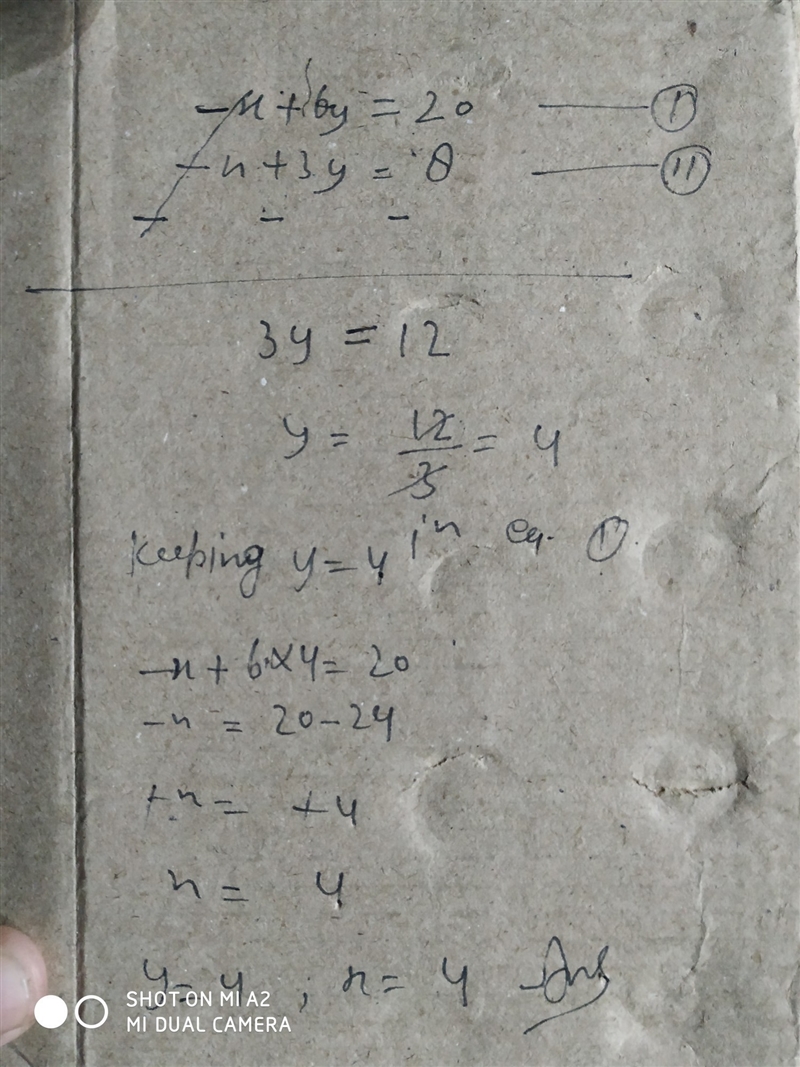 -x + 6y = 20 — (I)
-x + 3y = 8 — (II)
- - -
3y = 12
y = 12/3 = 4
Keeping y = 4 in eq. (I)
-x + 6×4 = 20
-x = 20 - 24
+x = +4
x = 4
y = 4 ; x = 4 Ans
SHOT ON MI A2
MI DUAL CAMERA